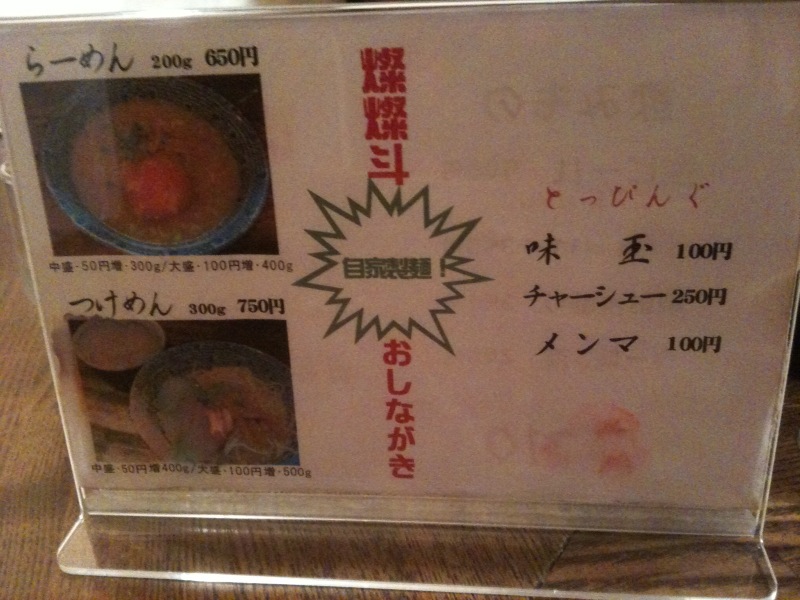 らーめん 200g 650円
中盛・50円増・300g/大盛・100円増・400g
つけめん 300g 750円
中盛・50円増400g/大盛・100円増・500g
燦燦斗
自家製麺!
おしながき
とっぴんぐ
味玉 100円
チャーシュー 250円
メンマ 100円